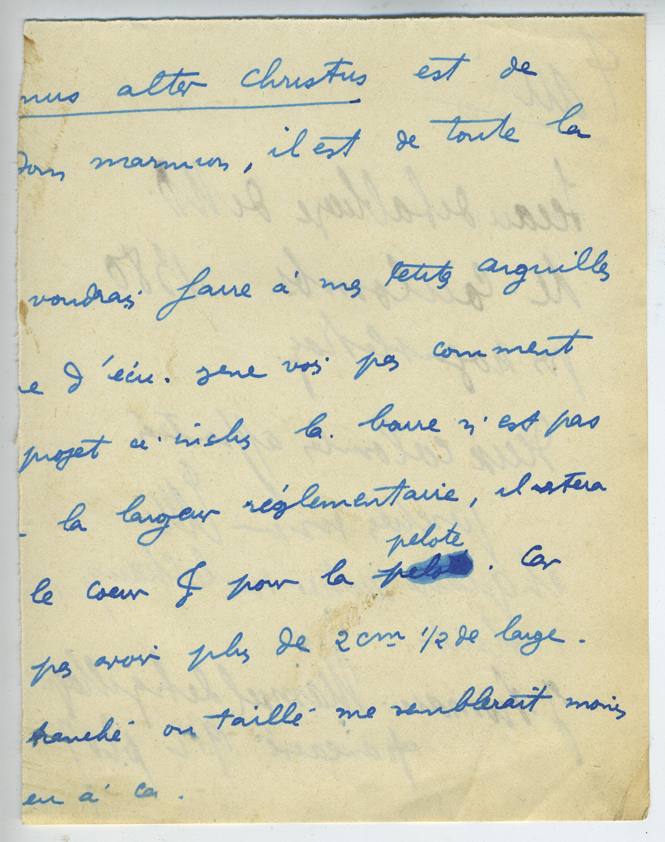 nus alter Christus est de
Dom marmion, il est de toute la
voudrais faire à mes petits anguilles
e d'écu. je ne vois pas comment
projet ci inclus la barre n'est pas
la largeur réglementaire, il
le coeur & pour la peloté. Car
pas avoir plus de 2 cm 1/2 de large.
tranché ou taillé me semblerait moins
eu à ça.